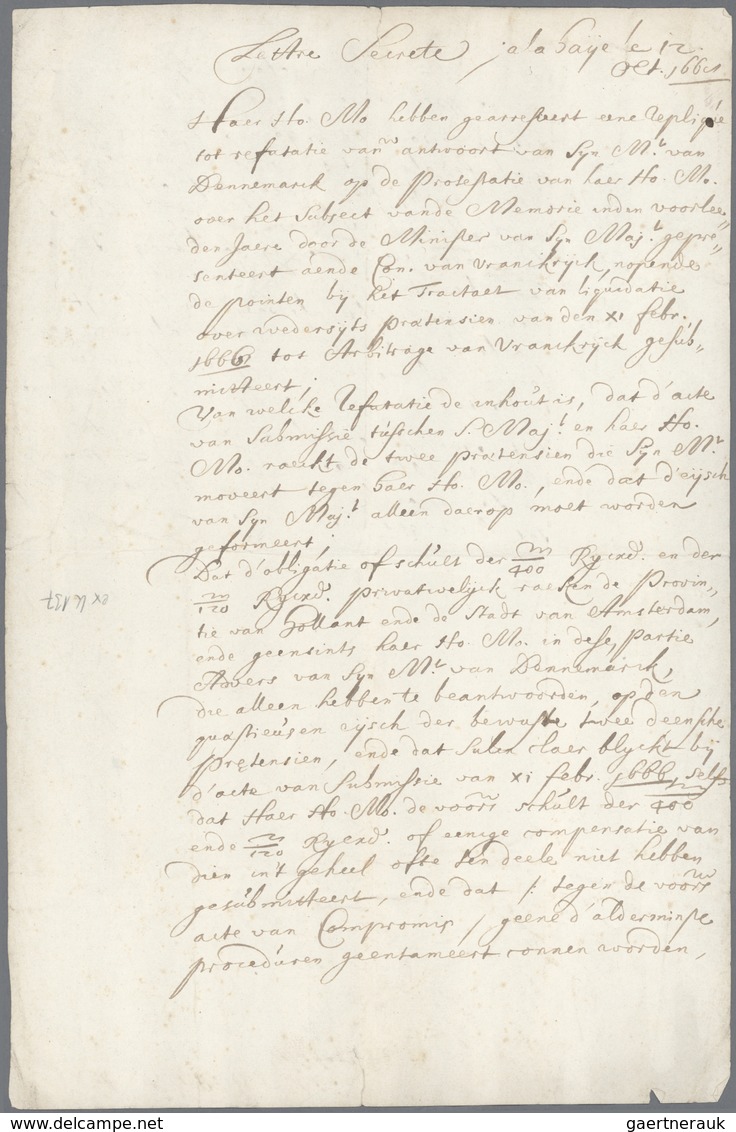 Lettre Secrete, a la Haije le 12
Oct. 1669
Haer Ho. Mo. hebben gearresteert eene replique
tot refutatie van't antwoort van Syn Mt. van
Dennemarck op de Protestatie van haer Ho. Mo.
over het subject vande Memorie inden voorlee„
den Jaere door de Minister van Syn Majt. gepre„
senteert aende Con. van Vranckryck, nopende
de pointen bij het Tractaet van liquidatie
over wedersyts prætensien van den XI febr.
1666 tot Arbitrage van Vranckryck gesub„
mitteert;
Van welcke refutatie de inhout is, dat d'acte
van Submissie tusschen S. Majt. en haer Ho.
Mo. raeckt de twee prætensien die Syn Mt.
moveert tegen haer Ho. Mo., ende dat d'eijsch
van Syn Majt. alleen daerop moet worden
geformeert;
Dat d'obligatie of schult der m/400 Rycxd. en der
m/120 Rycxd. privativelyck raecken de Provin„
tie van Hollant ende de Stadt van Amsterdam,
ende geensints haer Ho. Mo. in dese, partie
Advers van Syn Mt. van Dennemarck,
die alleen hebben te beantwoorden, op den
quæstieusen eijsch der bewuste twee deensche
Prætensien, ende dat sulcx claer blyckt bij
d'acte van Submissie van XI febr. 1666, selfs
dat Haer Ho. Mo. de voors. schult der m/400
ende m/120 Rycxd. of eenige compensatie van
dien in't geheel ofte ten deele niet hebben
gesubmitteert, ende dat /: tegen de voors.
acte van Compromis / geene d'alderminste
proceduren geentameert connen worden,
ex k 137
gaertnerauk